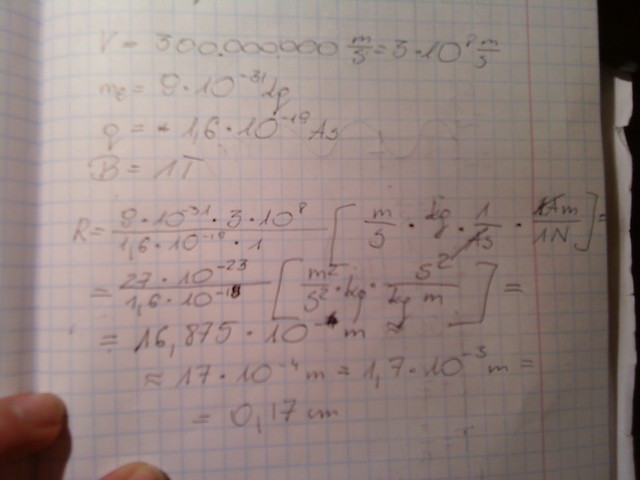 V = 300.000.000 m/s = 3·10⁸ m/s
mₑ = 9·10⁻³¹ kg
q = - 1,6·10⁻¹⁹ As
B = 1T
R = 9·10⁻³¹·3·10⁸ / 1,6·10⁻¹⁹·1 [m/s · kg · 1/As · 1Am/1N] =
= 27·10⁻²³ / 1,6·10⁻¹⁹ [m²/s² · kg · s²/kg m] =
= 16,875·10⁻⁴ m ≈
≈ 17·10⁻⁴ m = 1,7·10⁻³ m =
= 0,17 cm